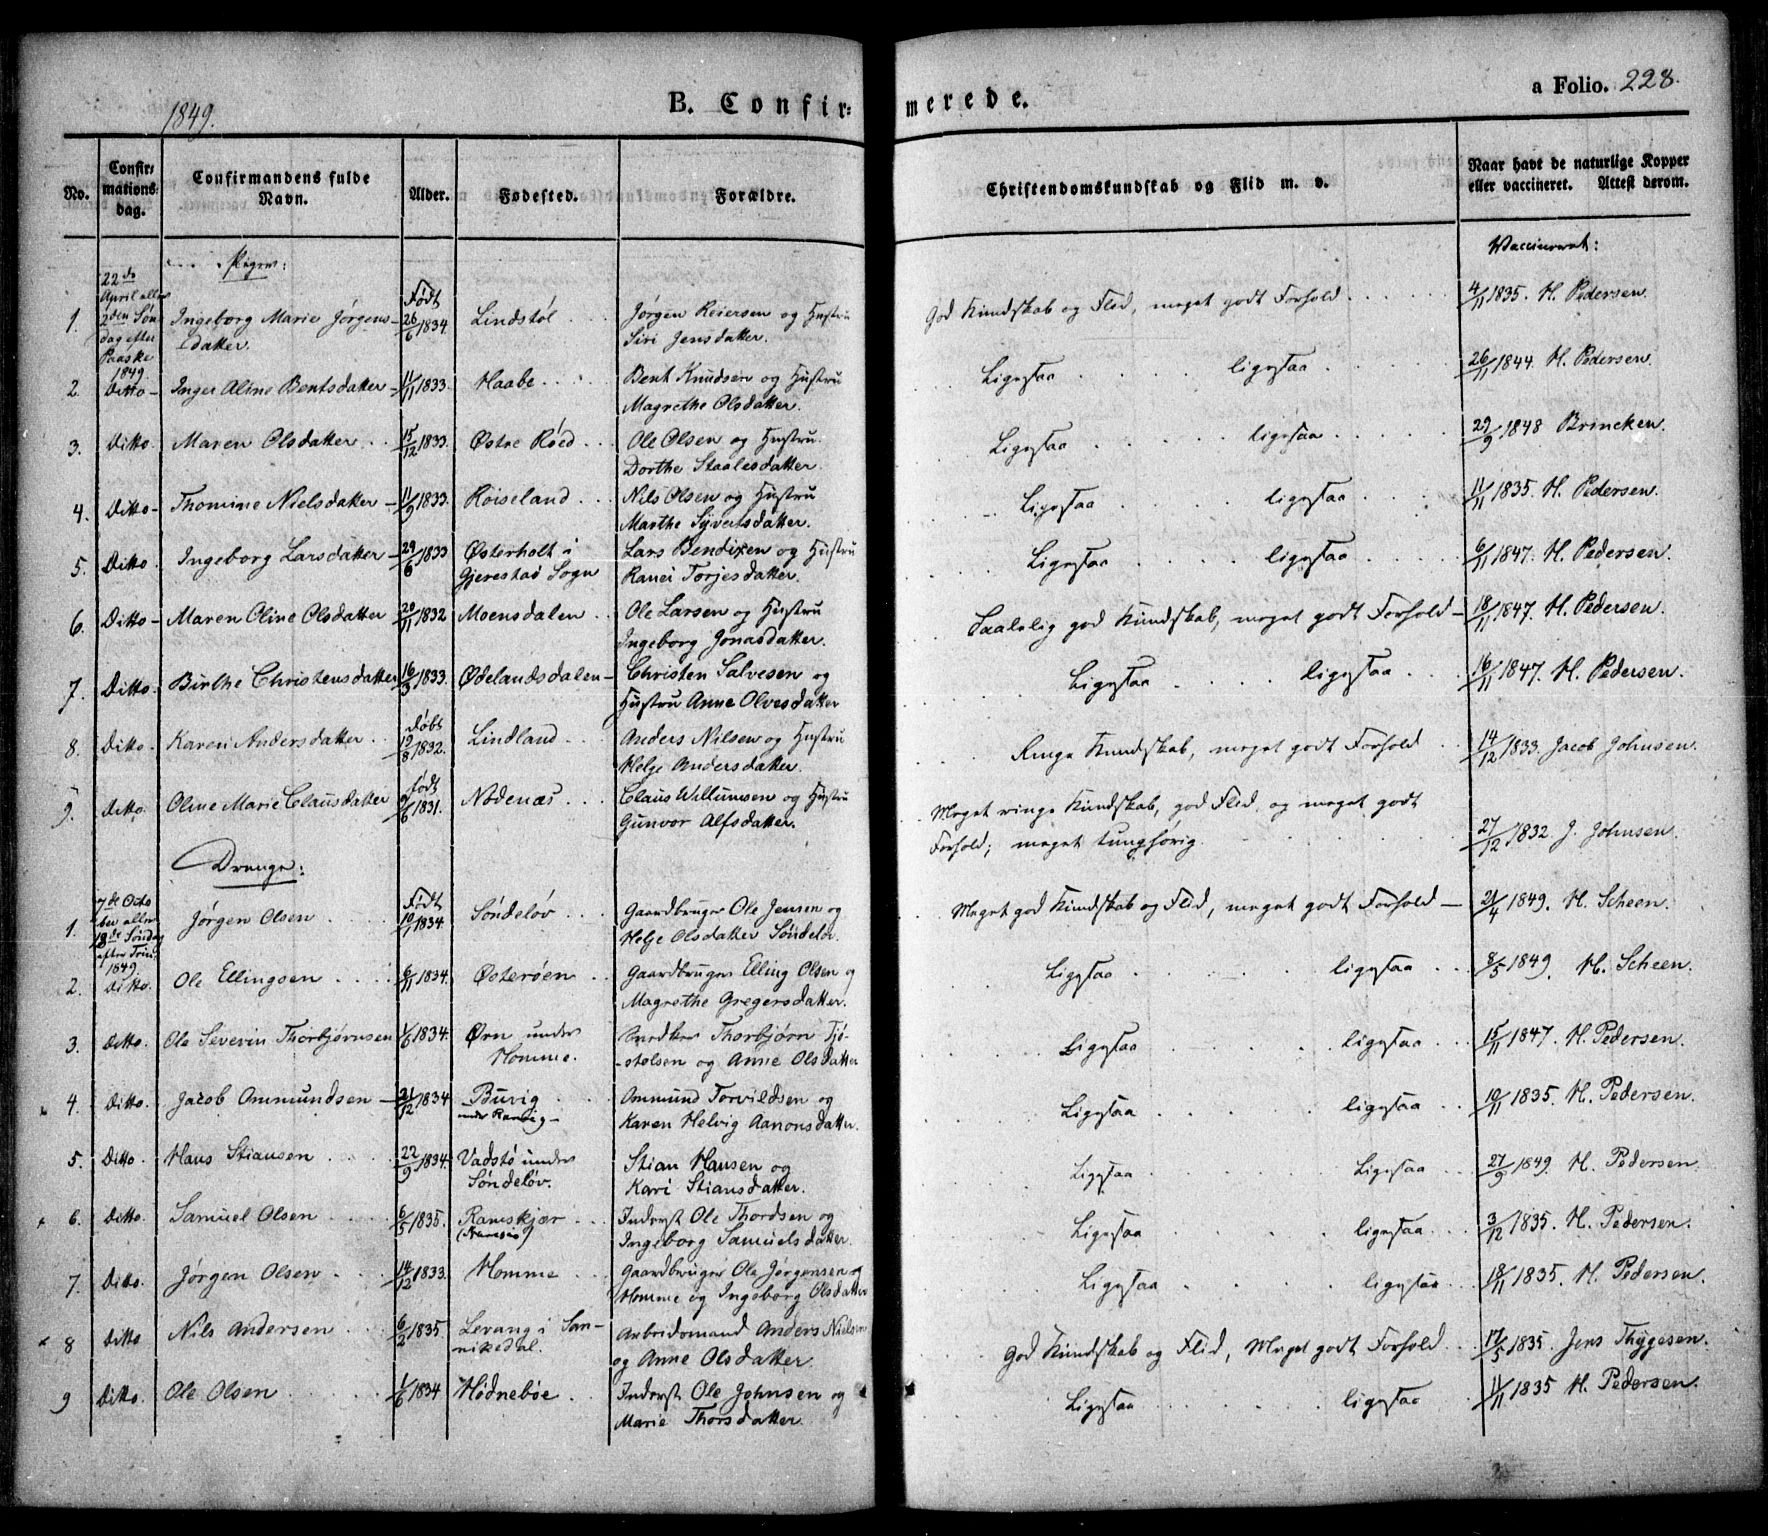 1849.
B. Confirmerede.
a Folio. 228.
No.
Confirmationsdag.
Confirmandens fulde Navn.
Alder.
Fødested.
Forældre.
Christendomskundskab og Flid m. v.
Naar havt de naturlige Kopper eller vaccineret. Attest derom.
Piger:
Vaccineret:
1. 22de April eller 2den Søndag efter Paaske 1849 Ingeborg Marie Jørgensdatter. Født 26/6 1834. Lindstøl Jørgen Reiersen og Hustru Siri Jensdatter. God Kundskab og Flid, meget godt Forhold 4/11 1835. H. Pedersen.
2. Ditto Inger Aline Bentsdatter 11/11 1833. Haabe Bent Knudsen og Hustru Magrethe Olsdatter. Ligesaa ligesaa 26/11 1844 H. Pedersen.
3. Ditto. Maren Olsdatter 15/12 1833. Østre Røed Ole Olsen og Hustru Dorthe Staalesdatter Ligesaa ligesaa 29/9 1848 Brincken.
4. Ditto Thomine Nielsdatter 11/9 1833. Røiseland Nils Olsen og Hustru Marthe Syvertsdatter. Ligesaa ligesaa 11/11 1835. H. Pedersen.
5. Ditto. Ingeborg Larsdatter 29/6 1833 Østerholt i Gjerestad Sogn Lars Bendixen og Hustru Ranei Torjesdatter. Ligesaa ligesaa 6/11 1847. H. Pedersen.
6. Ditto Maren Oline Olsdatter 20/11 1832 Moensdalen Ole Larsen og Hustru Ingeborg Jonasdatter. Taalelig god Kundskab, meget godt Forhold 18/11 1847. H. Pedersen.
7. Ditto. Birthe Christensdatter 16/3 1833. Ødelandsdalen Christen Salvesen og Hustru Anne Olvesdatter Ligesaa ligesaa 16/11 1847. H. Pedersen.
8. Ditto. Karen Andersdatter Døbt 19/8 1832. Lindland Anders Nilsen og Hustru Helje Andersdatter. Ringe Kundskab, meget godt Forhold 14/12 1833. Jacob Johnsen.
9. Ditto. Oline Marie Clausdatter Født 1831. Nødenæs Claus Willumsen og Hustru Gunvor Alfsdatter. Meget ringe Kundskab, god Flid, og meget godt Forhold; meget tunghørig. 27/12 1832. J. Johnsen.
Drenge:
1. 7de October eller 18de Søndag efter Trin. 1849 Jørgen Olsen Født 10/1 1834. Søndeløv Gaardbruger Ole Jensen og Helje Olsdatter Søndeløv. Meget god Kundskab og Flid, meget godt Forhold 21/4 1849. H. Scheen.
2. Ditto. Ole Ellingsen 6/11 1834. Østerøen Gaardbruger Elling Olsen og Magrethe Gregersdatter. Ligesaa ligesaa 8/5 1849. H. Scheen.
3. Ditto. Ole Severin Thorbjørnsen 1/6 1834. Ørn under Homme. Thorbjørn Tjøstolsen og Anne Olsdatter Ligesaa ligesaa 15/11 1847. H. Pedersen.
4. Ditto. Jacob Ommundsen 21/12 1834 Buvig under Ranvig Ommund Torvildsen og Karen Helvig Aanonsdatter. Ligesaa ligesaa 10/11 1835. H. Pedersen.
5. Ditto. Hans Stiansen 22/9 1834. Vadstø under Søndeløv. Stian Hansen og Kari Stiansdatter. Ligesaa Ligesaa 27/9 1849. H. Pedersen.
6. Ditto. Samuel Olsen 6/5 1835. Ramskjær Inderst Ole Thordsen og Ingeborg Samuelsdatter. Ligesaa ligesaa 3/12 1835. H. Pedersen.
7. Ditto. Jørgen Olsen 14/12 1833. Homme Gaardbruger Ole Jørgensen Homme og Ingeborg Olsdatter Ligesaa ligesaa 18/11 1835. H. Pedersen.
8 Ditto Nils Andersen 6/2 1835 Levang i Sannikedal. Arbeidsmand Anders Nielsen og Anne Olsdatter. God Kundskab og Flid, Meget godt Forhold 17/5 1835. Jens Thygesen.
9 Ditto. Ole Olsen 1/6 1834 Hødnebøe Inderst Ole Johnsen og Marie Thorsdatter. Ligesaa ligesaa 11/11 1835 H. Pedersen.